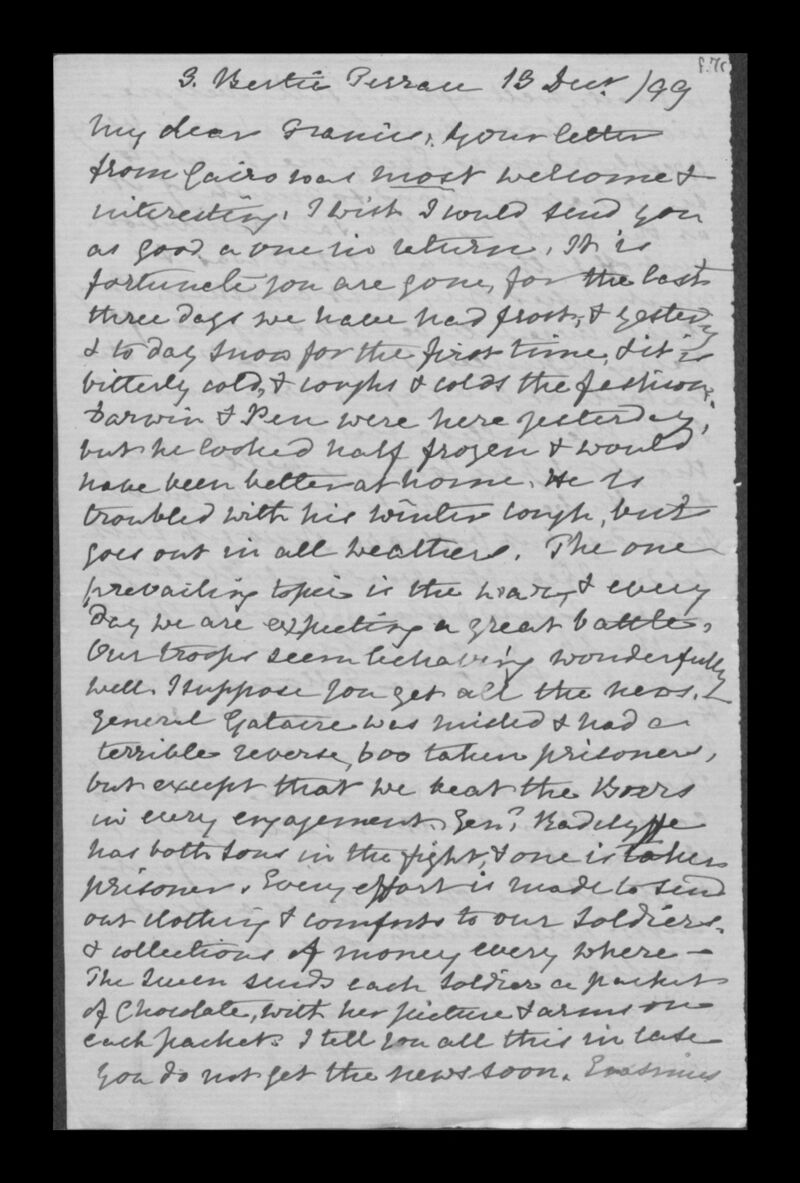 3. Bertie Terrace 13 Decr. /99
My dear Francis, Your letter
from Cairo was most welcome &
interesting. I wish I could send you
as good a one in return. It is
fortunate you are gone, for the last
three days we have had frost, & yesterdy
& to day snow for the first time, & it is
bitterly cold, & coughs & colds the fashion.
Darwin & Pen were here yesterday,
but he looked half frozen & would
have been better at home. He is
troubled with his winter cough, but
goes out in all weathers. The one
prevailing topic is the war, & every
day we are expecting a great battle.
Our troops seem behaving wonderfully
well. I suppose you get all the news.
General Gatacre was misled & had a
terrible reverse, 600 taken prisoners,
but except that we beat the Boers
in every engagement. Genl. Radclyffe
has both sons in the fight, & one is taken
prisoner. Every effort is made to send
out clothing & comforts to our soldiers,
& collections of money every where –
The Queen sends each soldier a packet
of Chocolate, with her picture & arms on
each packet. I tell you all this in case
you do not get the news soon. Erasmus